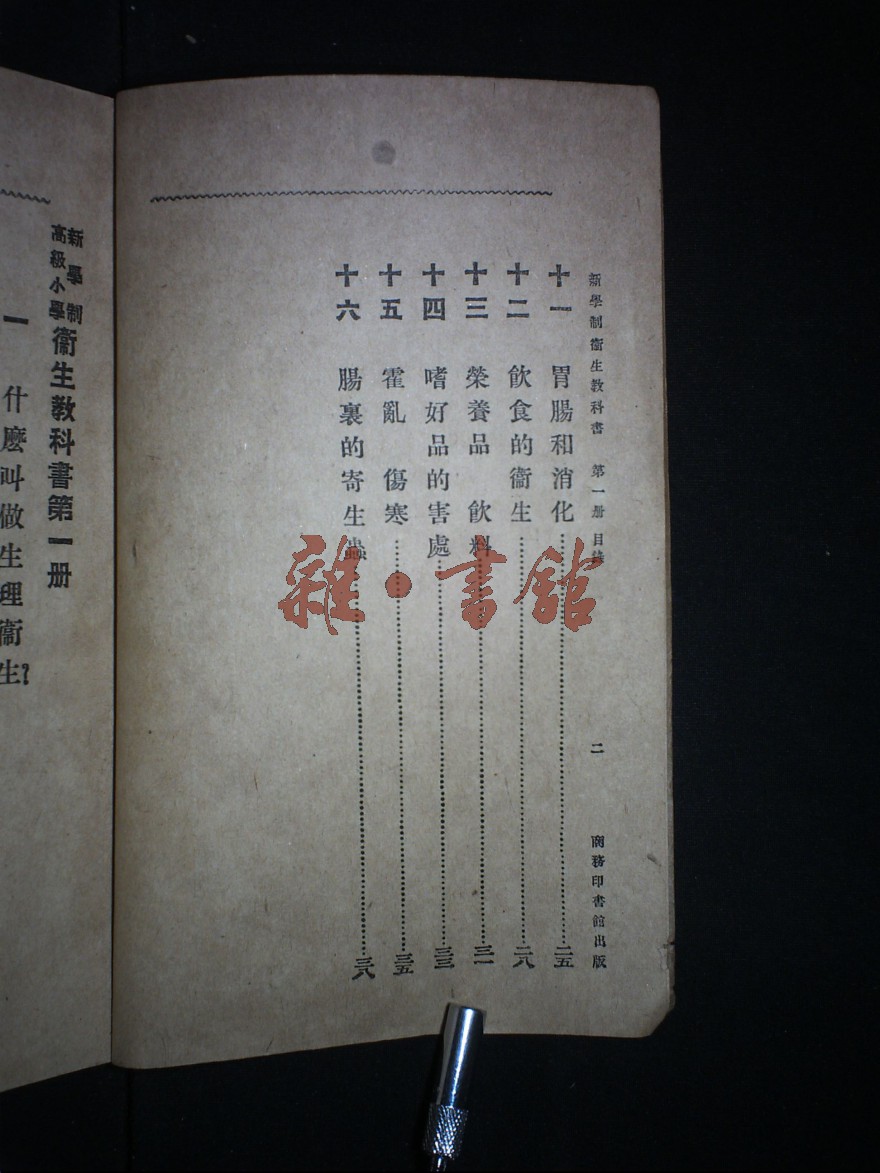 新學制衞生教科書 第一册 目錄 二 商務印書館出版
十一 胃腸和消化 二五
十二 飲食的衞生 二八
十三 榮養品 飲料 三一
十四 嗜好品的害處 三三
十五 霍亂 傷寒 三五
十六 腸裏的寄生蟲 三八
新學制
高級小學
衞生教科書第一册
一 什麽叫做生理衞生?
雜·書館